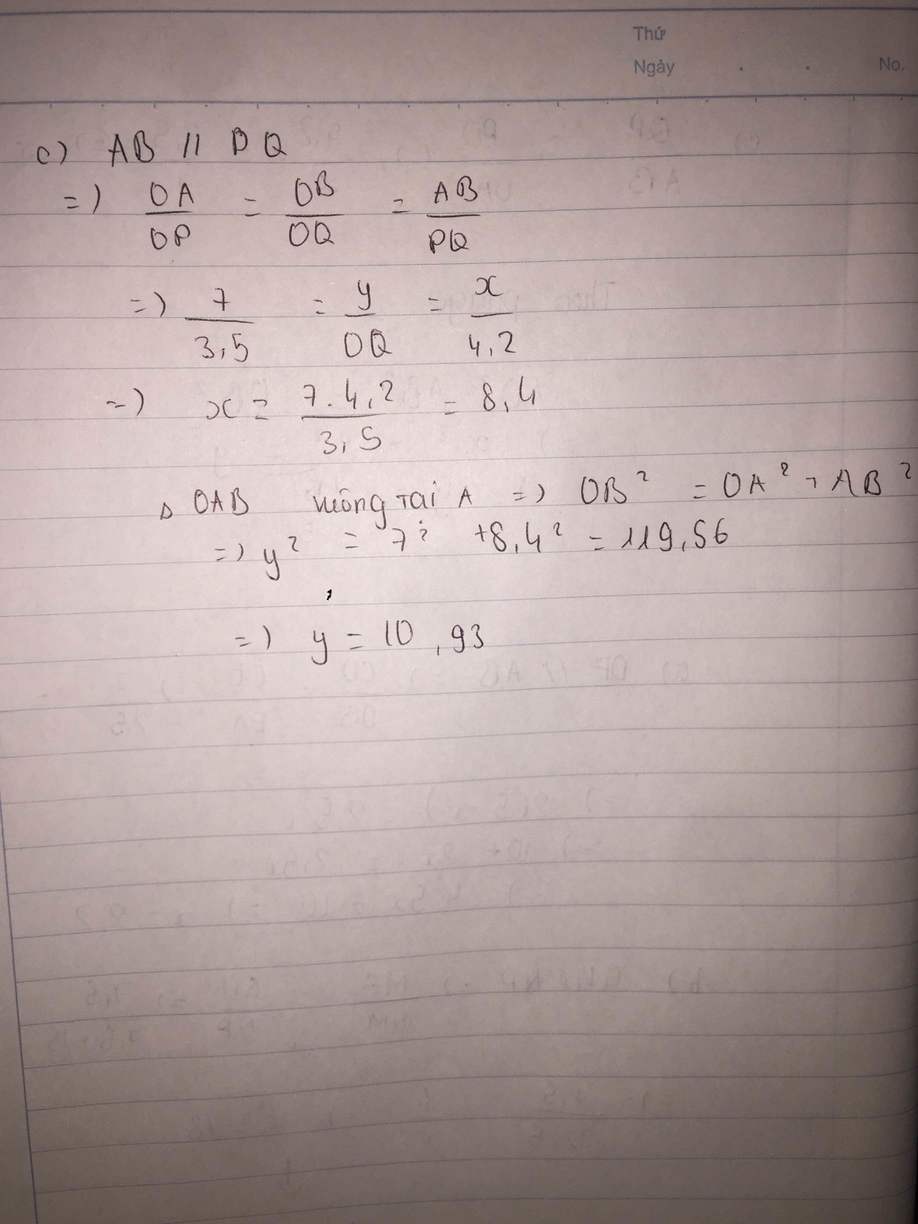 Thứ
Ngày . . No.
c) AB // PQ
=) OA/OP = OB/OQ = AB/PQ
=) 7/3,5 = y/OQ = x/4,2
=) x = 7.4,2/3,5 = 8,4
Δ OAB vuông tại A =) OB² = OA² + AB²
=) y² = 7² + 8,4² = 119,56
=) y = 10,93